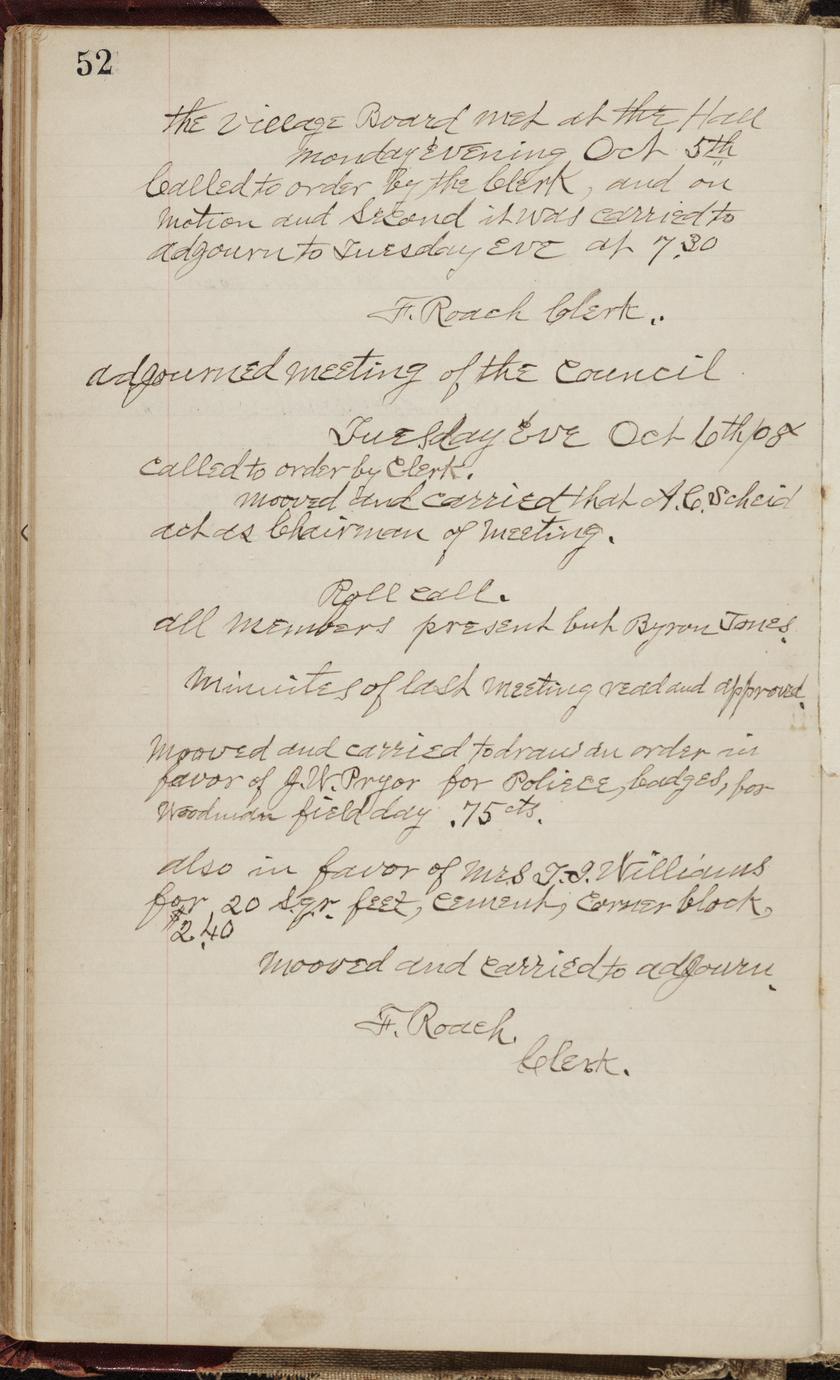 52
the Village Board met at the Hall
Monday Evening Oct 5th
Called to order by the Clerk, and on
Motion and Second it was carried to
adgourn to Tuesday Eve at 7.30
F. Roach Clerk.
adgourned meeting of the Council
Tuesday Eve Oct 6th/08
called to order by Clerk.
Mooved and carried that A.C. Scheid
act as Chairman of Meeting.
Roll call.
all Members present but Byron Jones.
Minuites of last Meeting read and approved.
Mooved and carried to draw an order in
favor of J.W. Pryor for Poliece, badges, for
Woodman field day .75 cts.
also in favor of Mrs T.J. Williams
for 20 sqr. feet, Cement, Corner block,
$2.40
Mooved and carried to adgourn.
F. Roach.
Clerk.